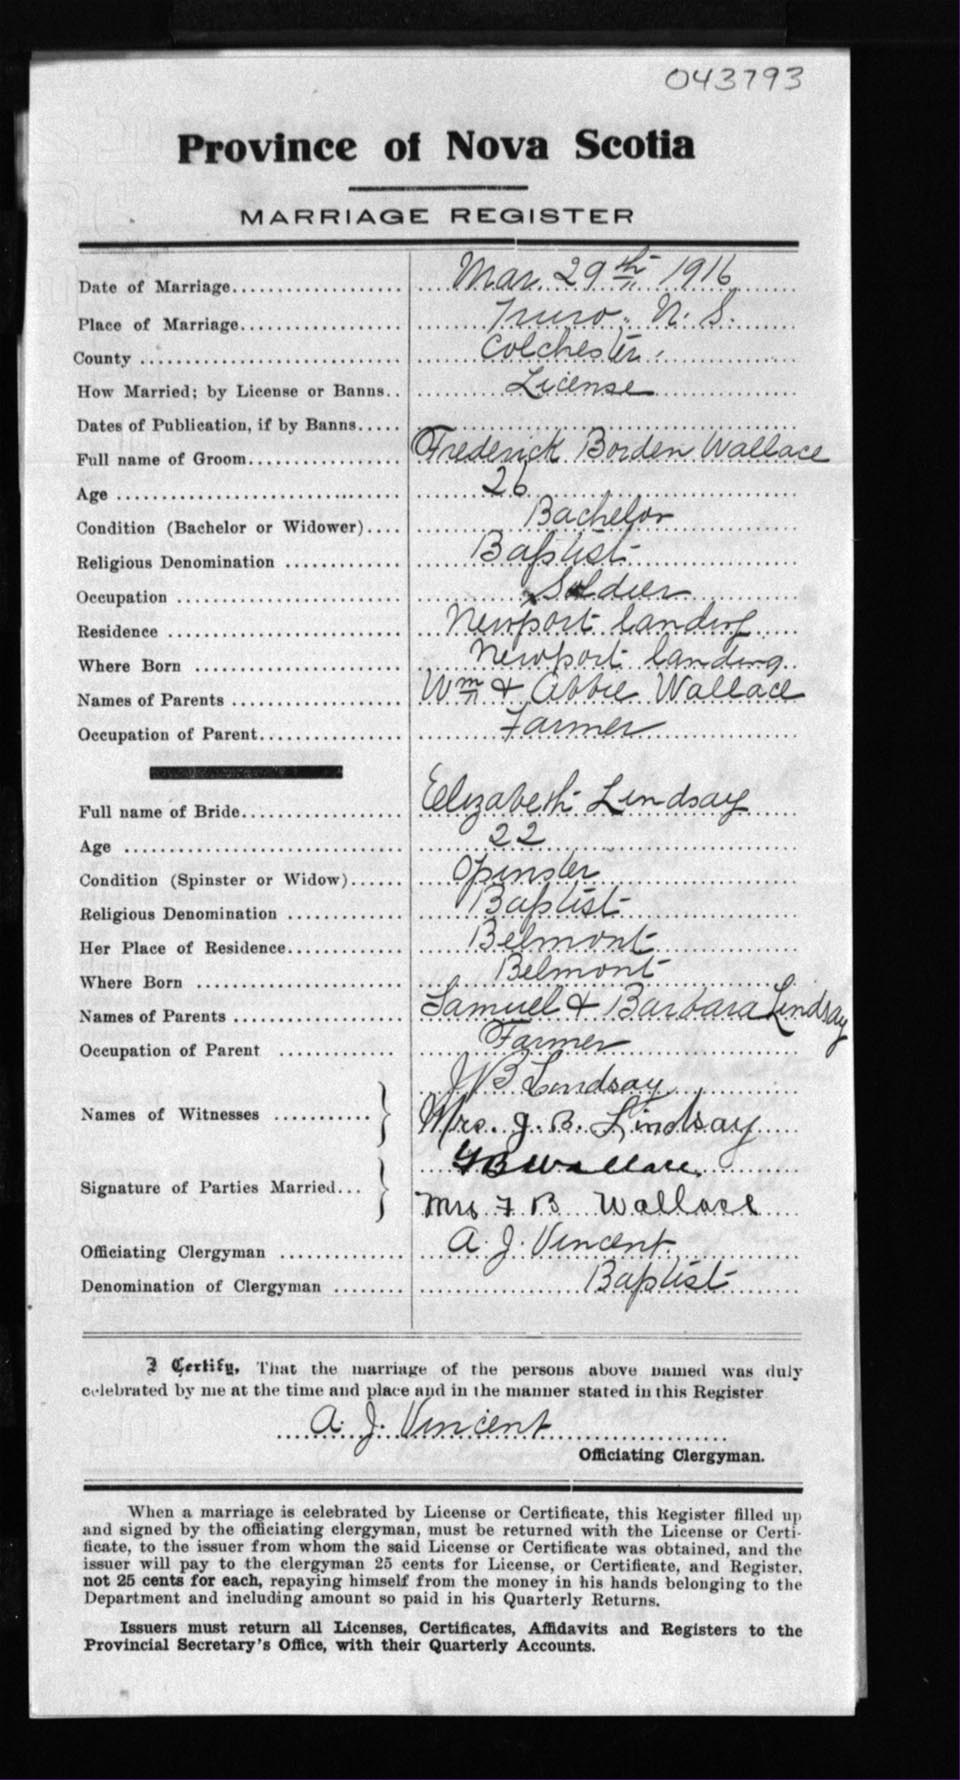 043793
Province of Nova Scotia
MARRIAGE REGISTER
Date of Marriage.................. Mar. 29th 1916
Place of Marriage.................. Truro, N. S.
County .................. Colchester.
How Married; by License or Banns.. License
Dates of Publication, if by Banns.....
Full name of Groom.................. Frederick Borden Wallace
Age .................. 26
Condition (Bachelor or Widower).... Bachelor
Religious Denomination ............. Baptist
Occupation .................. Soldier
Residence .................. Newport Landing
Where Born .................. Newport Landing
Names of Parents .................. Wm & Abbie Wallace
Occupation of Parent.................. Farmer
Full name of Bride.................. Elizabeth Lindsay
Age .................. 22
Condition (Spinster or Widow)...... Spinster
Religious Denomination ............. Baptist
Her Place of Residence............. Belmont
Where Born .................. Belmont
Names of Parents .................. Samuel & Barbara Lindsay
Occupation of Parent ............. Farmer
J B Lindsay
Names of Witnesses ........... } Mrs. J. B. Lindsay
F B Wallace
Signature of Parties Married... } Mrs F B Wallace
Officiating Clergyman ............. A. J. Vincent
Denomination of Clergyman ........ Baptist
I Certify, That the marriage of the persons above named was duly
celebrated by me at the time and place and in the manner stated in this Register
A. J. Vincent
Officiating Clergyman.
When a marriage is celebrated by License or Certificate, this Register filled up
and signed by the officiating clergyman, must be returned with the License or Certi-
ficate, to the issuer from whom the said License or Certificate was obtained, and the
issuer will pay to the clergyman 25 cents for License, or Certificate, and Register,
not 25 cents for each, repaying himself from the money in his hands belonging to the
Department and including amount so paid in his Quarterly Returns.
Issuers must return all Licenses, Certificates, Affidavits and Registers to the
Provincial Secretary's Office, with their Quarterly Accounts.